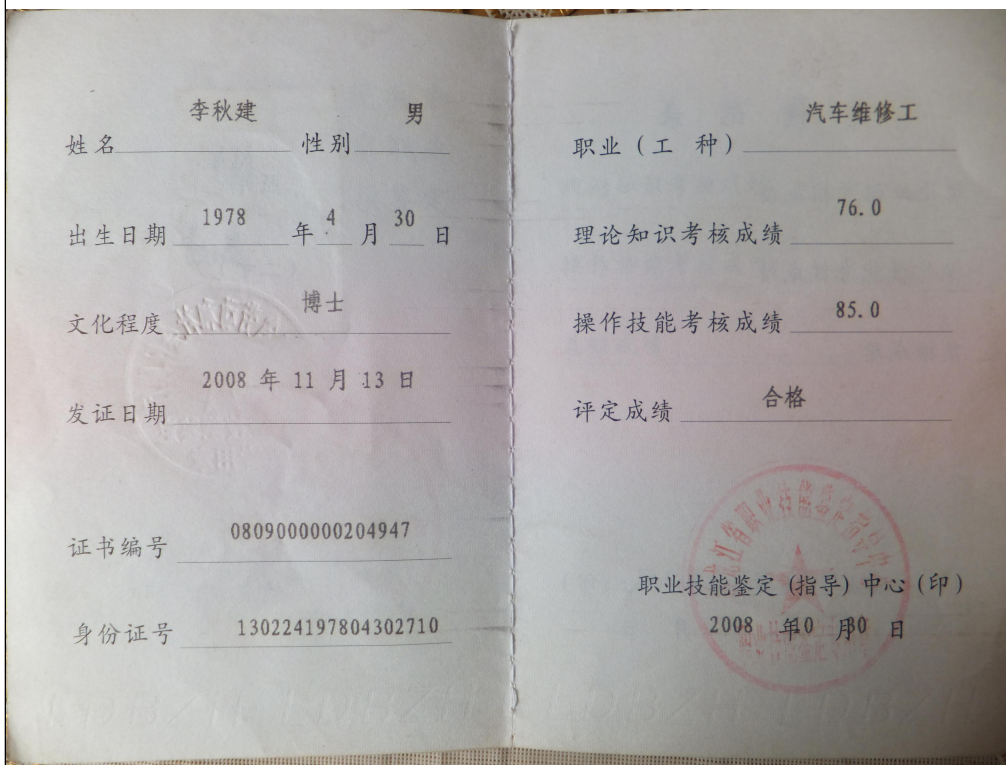 姓名 李秋建 性别 男
出生日期 1978 年 4 月 30 日
文化程度 博士
发证日期 2008 年 11 月 13 日
证书编号 0809000000204947
身份证号 130224197804302710
职业（工 种） 汽车维修工
理论知识考核成绩 76.0
操作技能考核成绩 85.0
评定成绩 合格
职业技能鉴定 (指导) 中心 (印)
2008 年0 月0 日